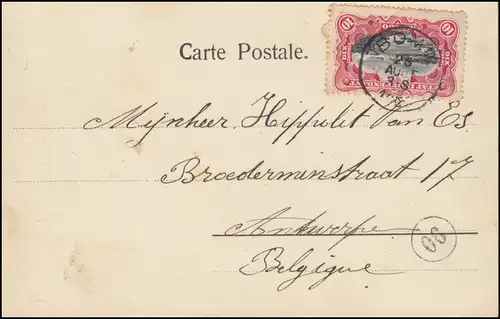 Carte Postale.
10 10
BOMA
28
AOUT
3-S
Mijnheer Hippolit Van Es
Broederminstraat 17
Antwerpe
Belgique
90